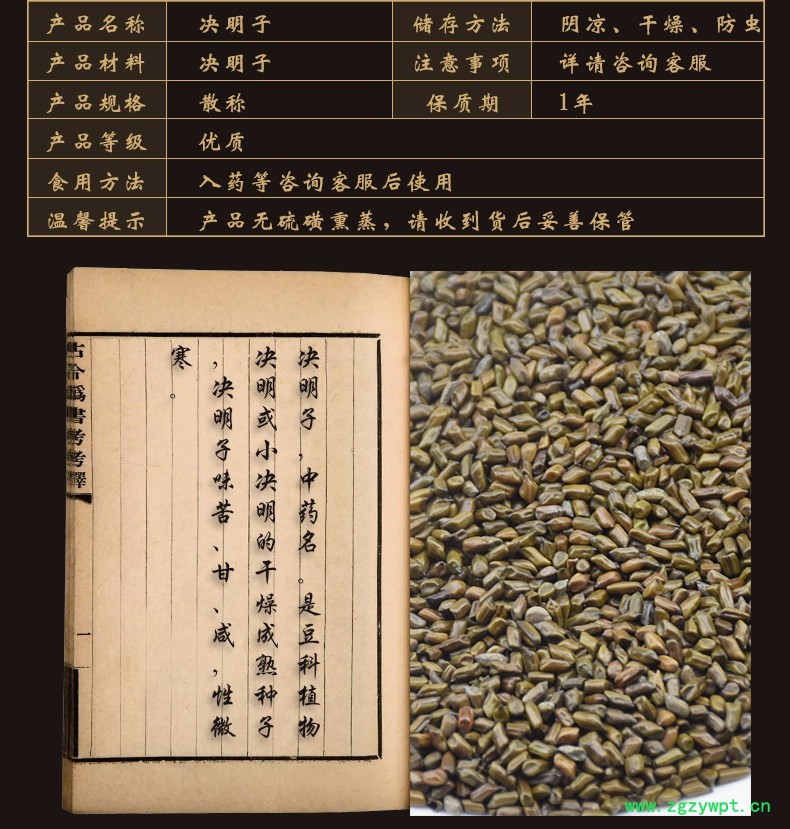 产品名称 决明子 储存方法 阴凉、干燥、防虫
产品材料 决明子 注意事项 详请咨询客服
产品规格 散称 保质期 1年
产品等级 优质
食用方法 入药等咨询客服后使用
温馨提示 产品无硫磺熏蒸，请收到货后妥善保管
决明子，中药名。是豆科植物
决明或小决明的干燥成熟种子
，决明子味苦、甘、咸，性微
寒。
古今偽書考考釋
一
www.zgzywpt.cn